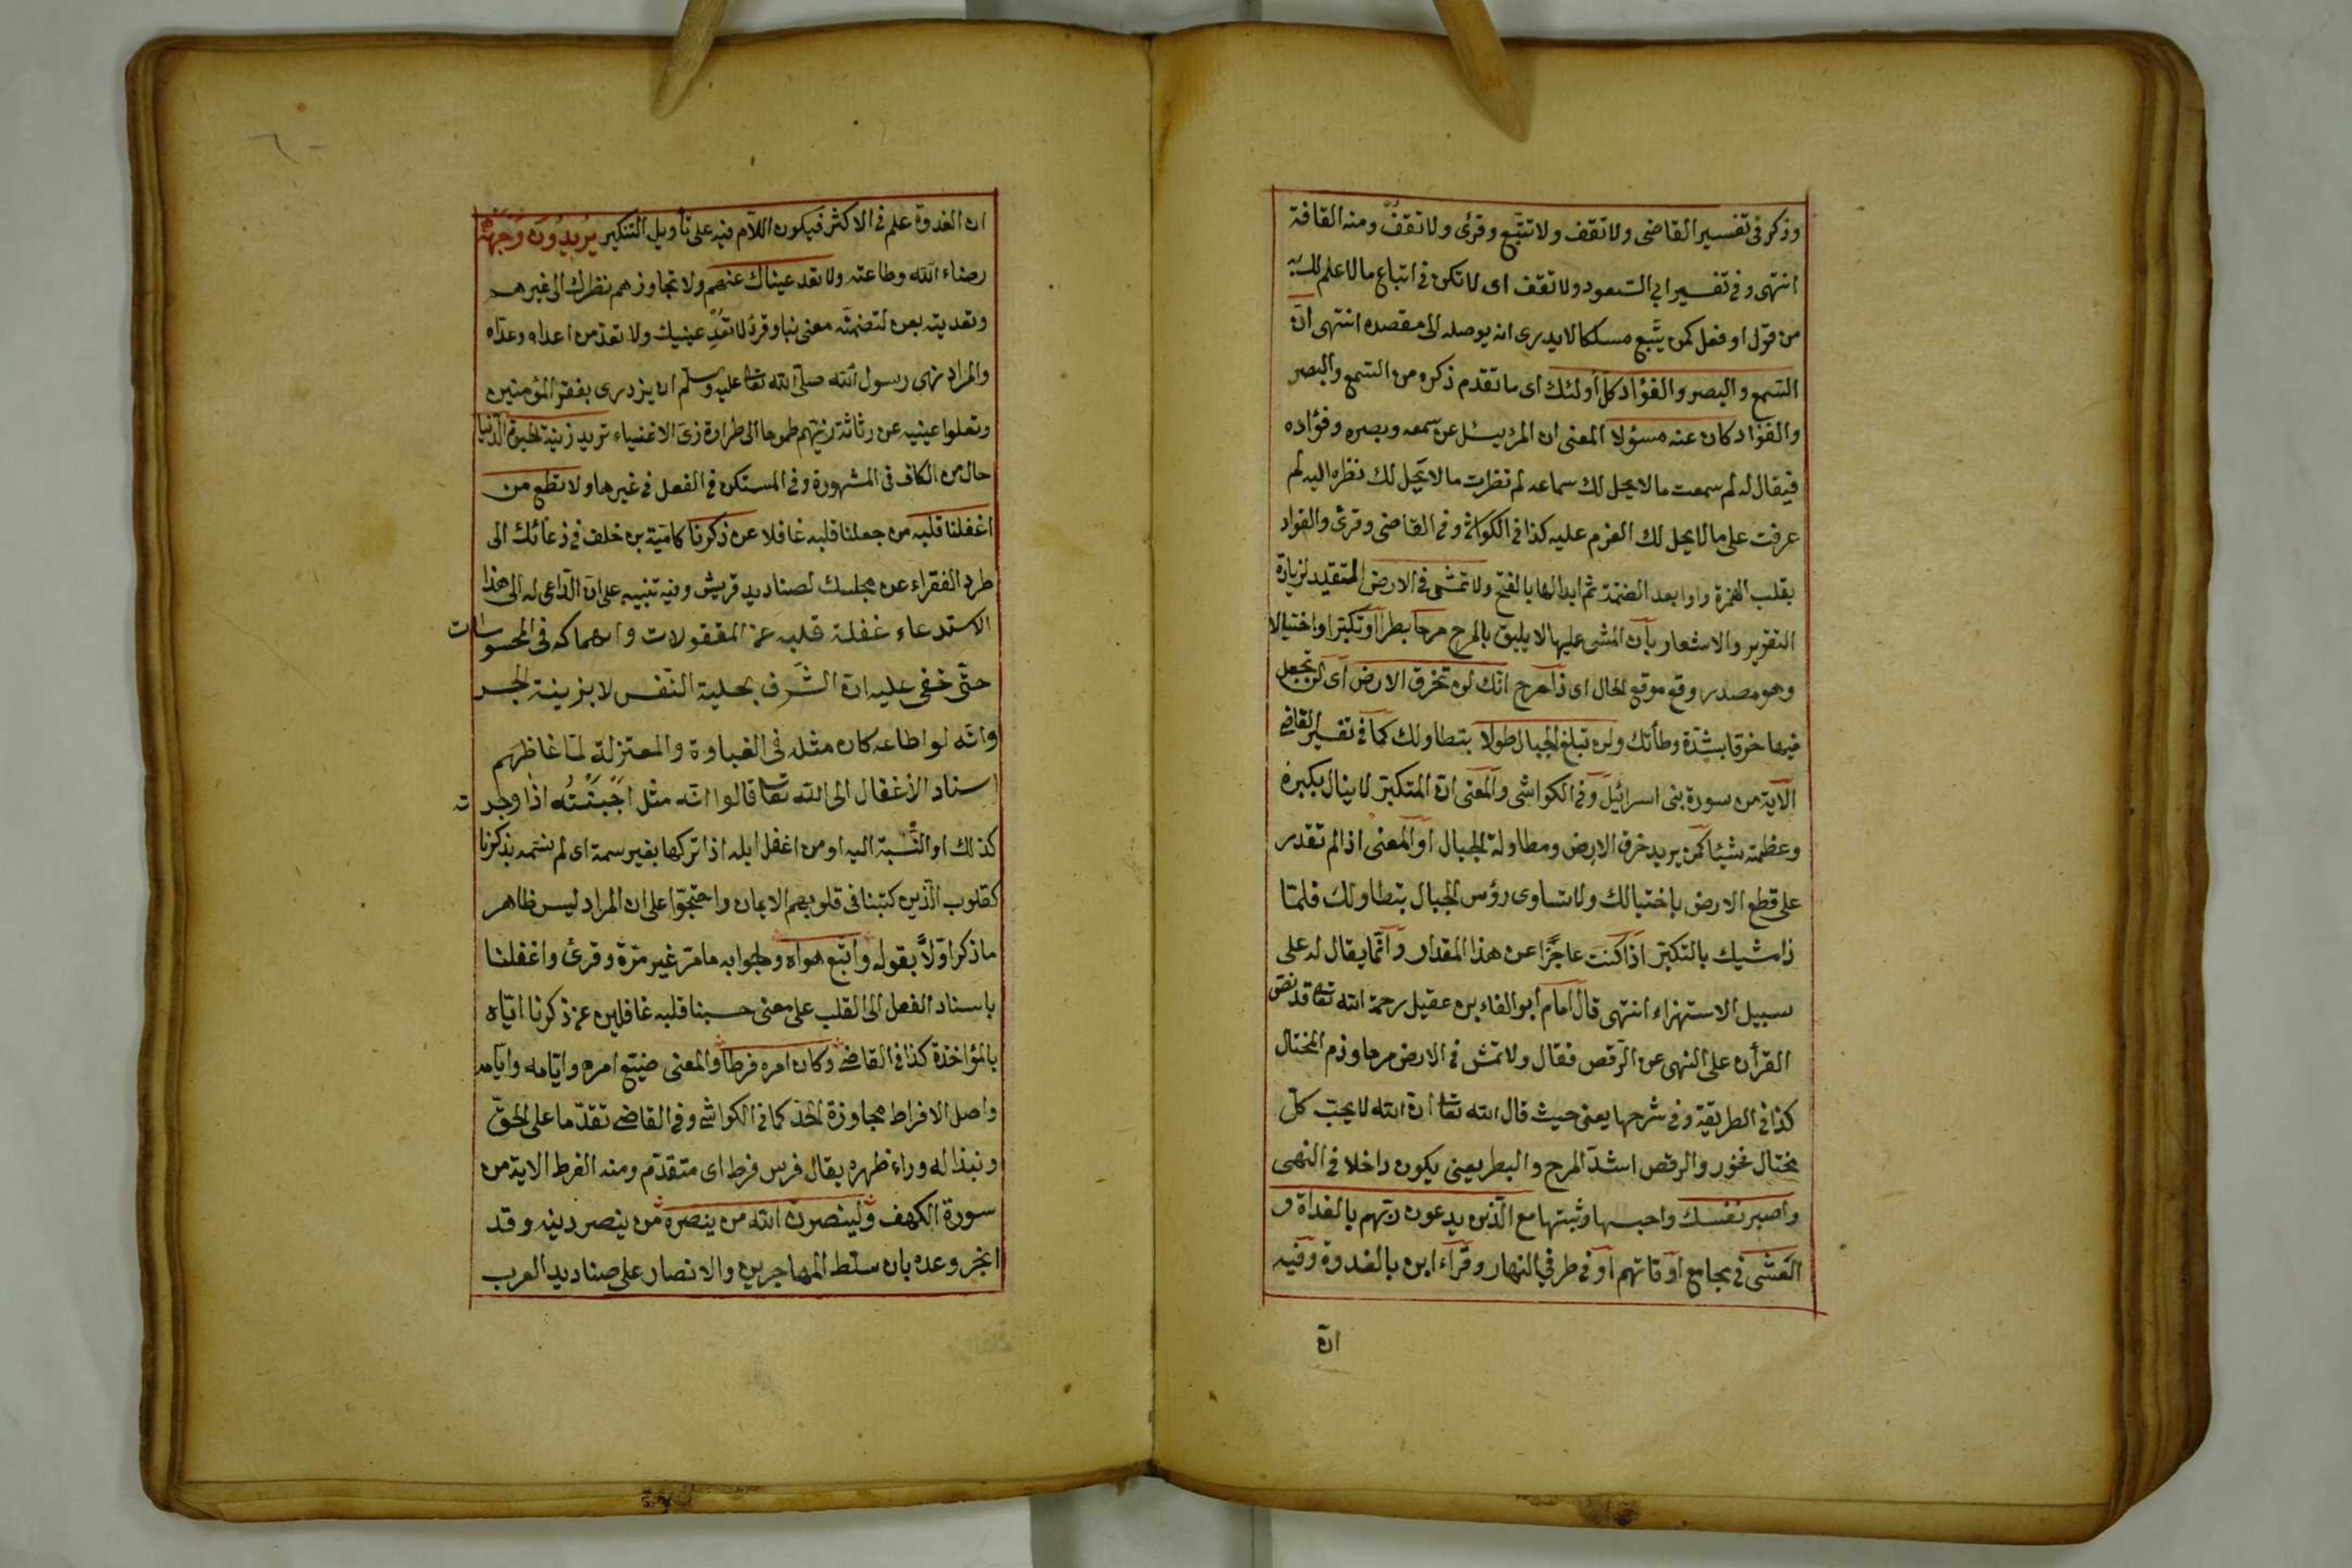 وذكر فى تفسير القاضى ولا تقف ولا تتبّع وقرئ ولا تقفُ ومنه القافة
انتهى وفى تفسير ابى السعود ولا تقف اى لا تكن فى اتباع ما لا علم لك به
من قول او فعل كمن يتّبع مسلكا لا يدرى انه يوصله الى مقصده انتهى انّ
السّمع والبصر والفؤاد كلّ أولئك اى ما تقدم ذكره من السّمع والبصر
والفؤاد كان عنه مسؤلا المعنى ان المرء يسئل عن سمعه وبصره وفؤاده
فيقال له لم سمعت ما لا يحل لك سماعه لم نظرت ما لا يحل لك نظره اليه لم
عزمت على ما لا يحل لك العزم عليه كذا فى الكواشى وفى القاضى وقرئ والفواد
بقلب الهمزة واوا بعد الضمّة ثم ابدالها بالفتح ولا تمش فى الارض المتقييد لزيادة
التقرير والاشعار بأن المشى عليها لا يليق بالمرح مرحا بطرا او تكبّرا واختيالا
وهو مصدر وقع موقع الحال اى ذا مرح انّك لن تخرق الارض اى لن تجعل
فيها خرقا بشدّة وطأتك ولن تبلغ الجبال طولا بتطاولك كما فى تفسير القاضى
الآية من سورة بنى اسرائيل وفى الكواشى والمعنى ان المتكبّر لا ينال بكبره
وعظمته شيئا كمن يريد خرق الارض ومطاولة الجبال او المعنى اذا لم تقدر
على قطع الارض باختيالك ولا تساوى رؤس الجبال بتطاولك فلمّا
ذا مشيك بالتكبّر اذا كنت عاجزا عن هذا المقدار وانّما يقال له على
سبيل الاستهزاء انتهى قال امام ابو الفاء بن عقيل رحمة الله تعالى قد نصّ
القرأن على النهى عن الرّقص فقال ولا تمش فى الارض مرحا وذم المختال
كذا فى الطريقة وفى شرحها يعنى حيث قال الله تعالى ان الله لا يحبّ كلّ
مختال فخور والرقص اشدّ المرح والبطر يعنى يكون داخلا فى النهى
واصبر نفسك واحبسها وثبتها مع الّذين يدعون ربّهم بالغداة و
العشى فى مجامع اوقاتهم او فى طرفى النهار وقراء ابن بالغدوة وفيه
انّ
ان الغدوة علم فى الاكثر فيكون اللّام فيه على تأويل التنكير يريدون وجهه
رضاء الله وطاعته ولا تعد عيناك عنهم ولا تجاوزهم نظرك الى غيرهم
وتعديته بعن لتضمنّه معنى نبا وقرئ لا تعدّ عينيك ولا تعد من اعداه وعدّاه
والمراد نهى رسول الله صلى الله تعالى عليه وسلم ان يزدرى بفقراء المؤمنين
وتعلوا عينيه عن رثاثة زيّهم طموحا الى طراوة زىّ الاغنياء تريد زينة الحيوة الدّنيا
حال من الكاف فى المشهورة وفى المستكن فى الفعل فى غيرها ولا تطع من
اغفلنا قلبه من جعلنا قلبه غافلا عن ذكرنا كاميّة بن خلف فى دعائك الى
طرد الفقراء عن مجلسك لصناديد قريش وفيه تنبيه على ان الدّاعى له الى هذا
الاستدعاء غفلة قلبه عن المعقولات وانهماكه فى المحسوسات
حتّى خفى عليه ان الشّرف بحلية النّفس لا بزينة الجسد
وانّه لو اطاعه كان مثله فى الغباوة والمعتزلة لمّا غاظهم
اسناد الاغفال الى الله تعالى قالوا انّه مثل اجبنته اذا وجدته
كذلك او النّسبة اليه او من اغفل ابله اذا تركها بغير سمة اى لم نسمه بذكرنا
كقلوب الّذين كتبنا فى قلوبهم الايمان واحتجّوا على ان المراد ليس ظاهر
ما ذكر اوّلا بقوله واتبع هواه وجوابه ما مرّ غير مرّة وقرئ واغفلنا
باسناد الفعل الى القلب على معنى حسبنا قلبه غافلين عن ذكرنا ايّاه
بالمؤاخذة كذا فى القاضى وكان امره فرطا والمعنى ضيّع امره وايّامه وايامه
واصل الافراط مجاوزة الحدّ كما فى الكواشى وفى القاضى تقدّما على الحقّ
ونبذا له وراء ظهره يقال فرس فرط اى متقدّم ومنه الفرط الاية من
سورة الكهف ولينصرنّ الله من ينصره من ينصر دينه وقد
انجز وعده بان سلّط المهاجرين والانصار على صناديد العرب